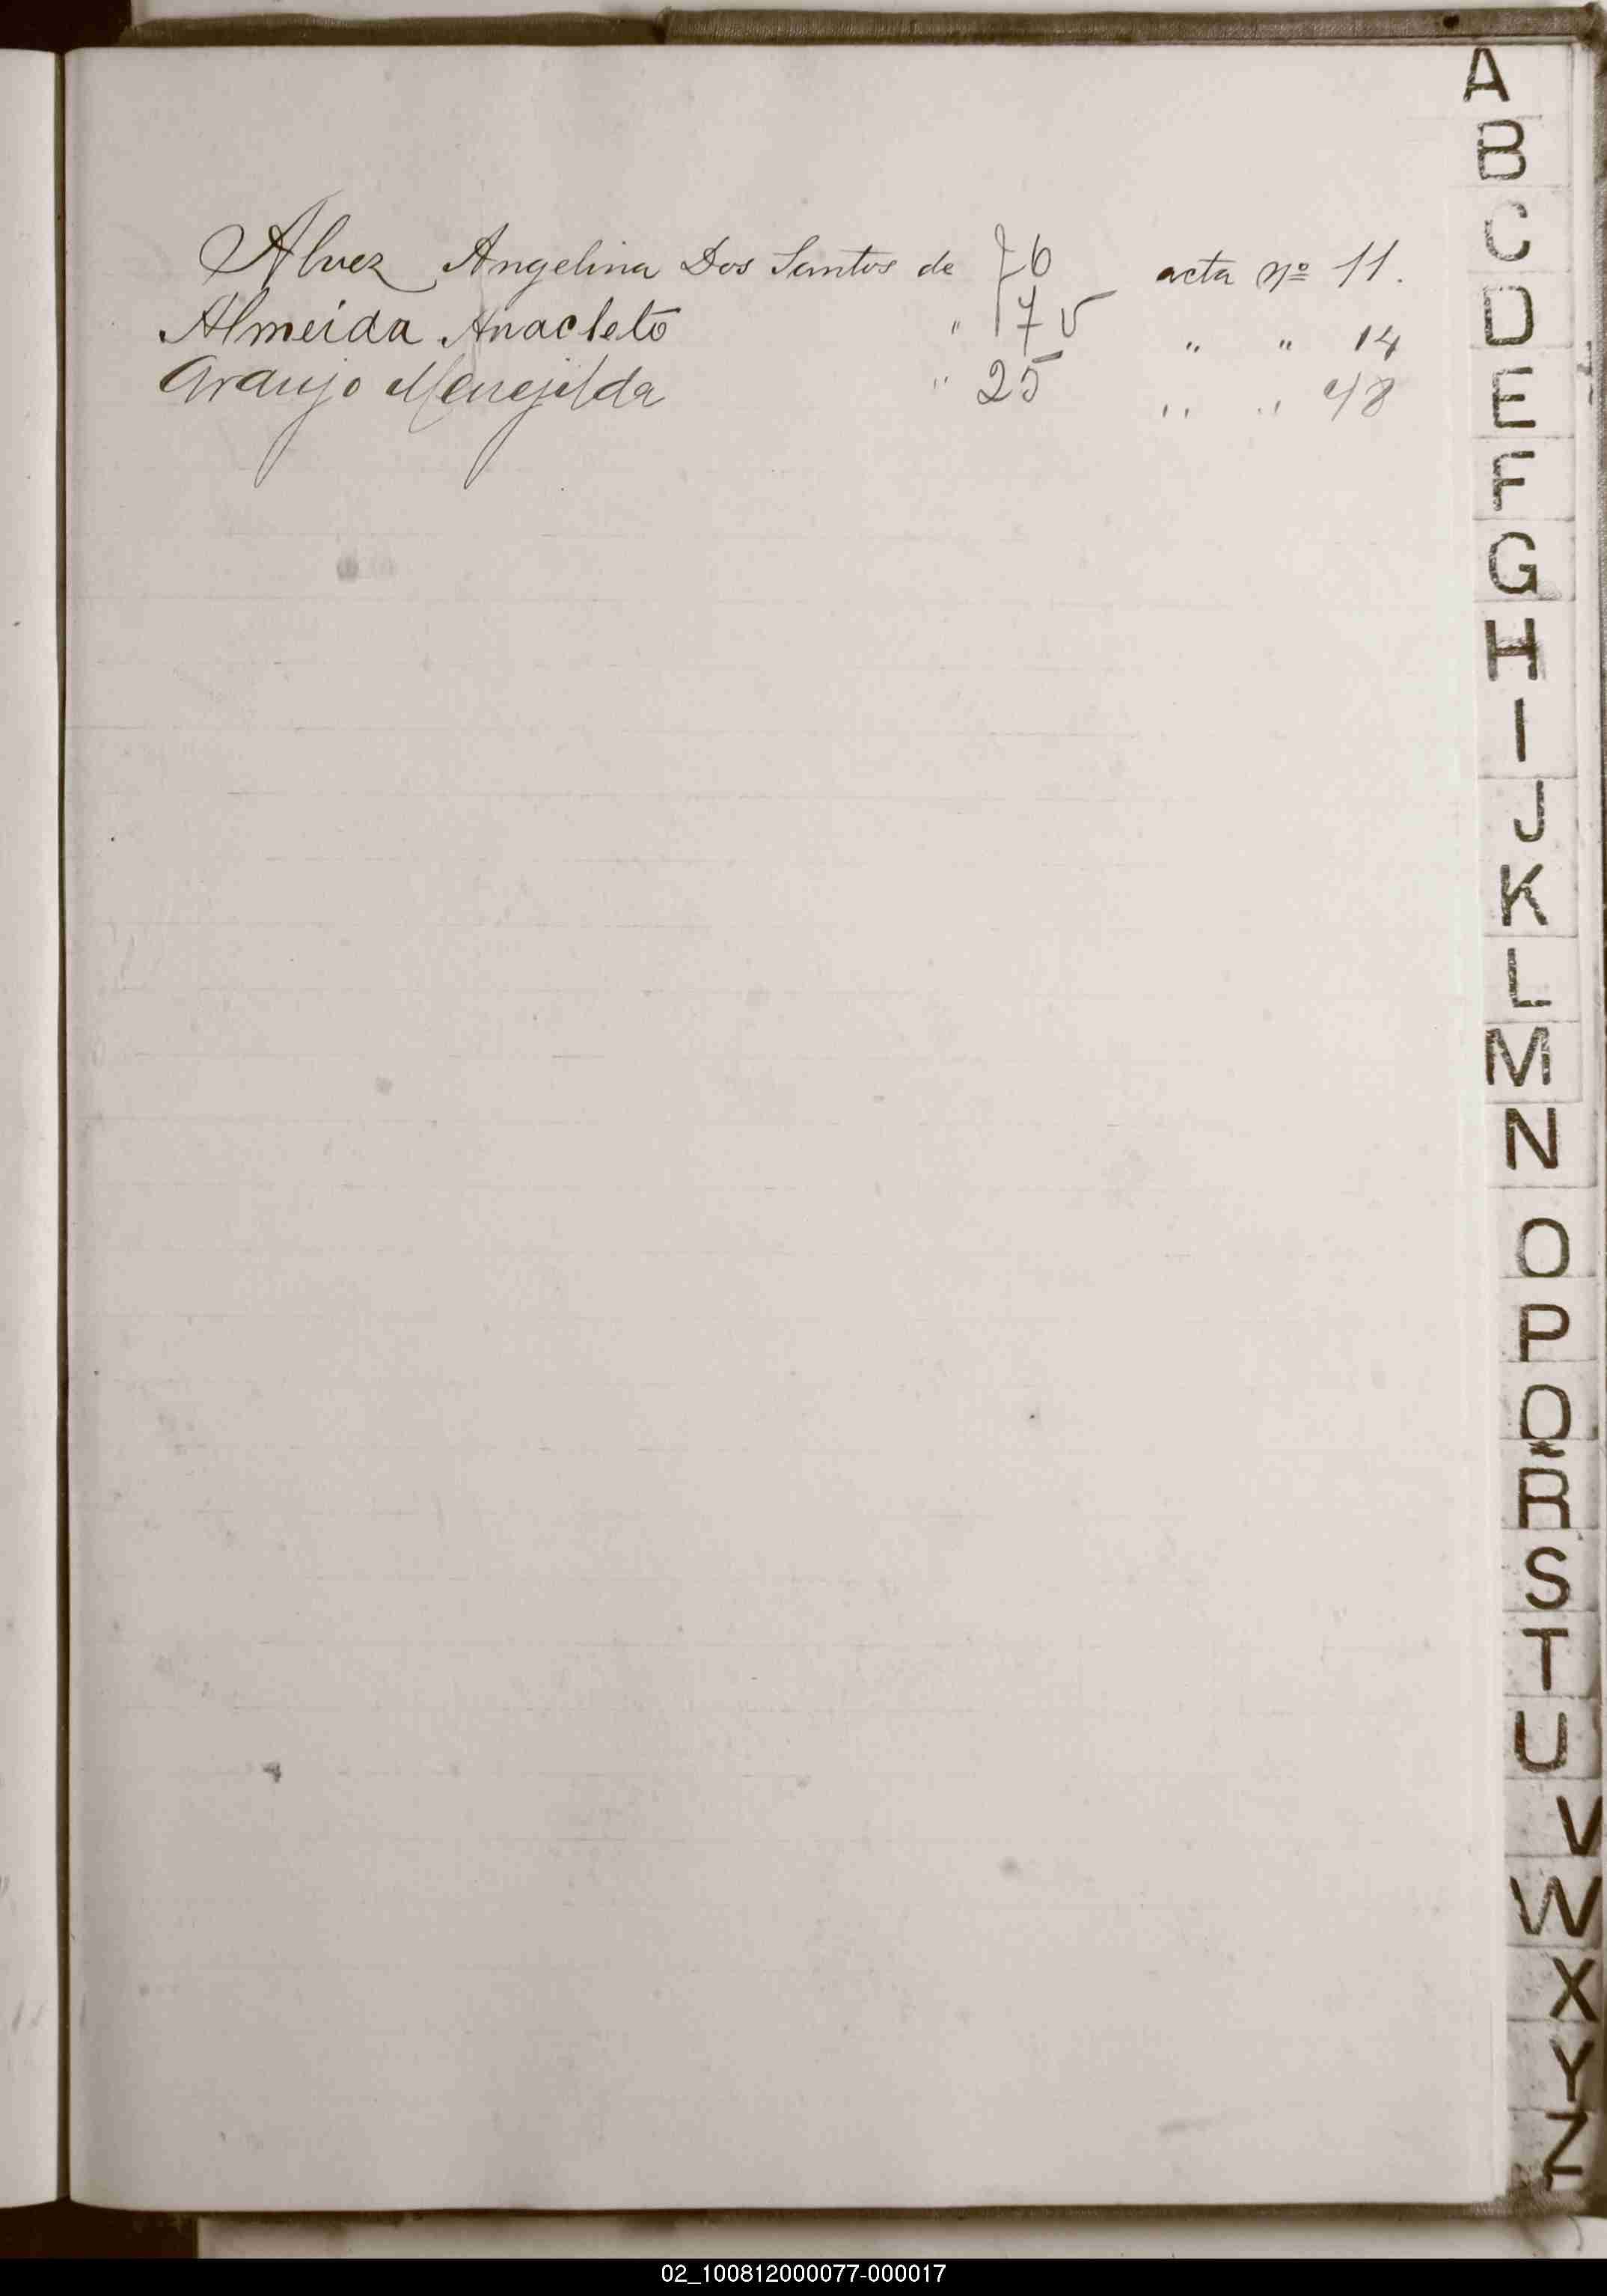 Alvez Angelina Dos Santos de f 6 acta Nº 11.
Almeida Anacleto " 7 v " " 14
Araujo Menejilda " 25 " " 48
A
B
C
D
E
F
G
H
I
J
K
L
M
N
O
P
Q
R
S
T
U
V
W
X
Y
Z
02_100812000077-000017